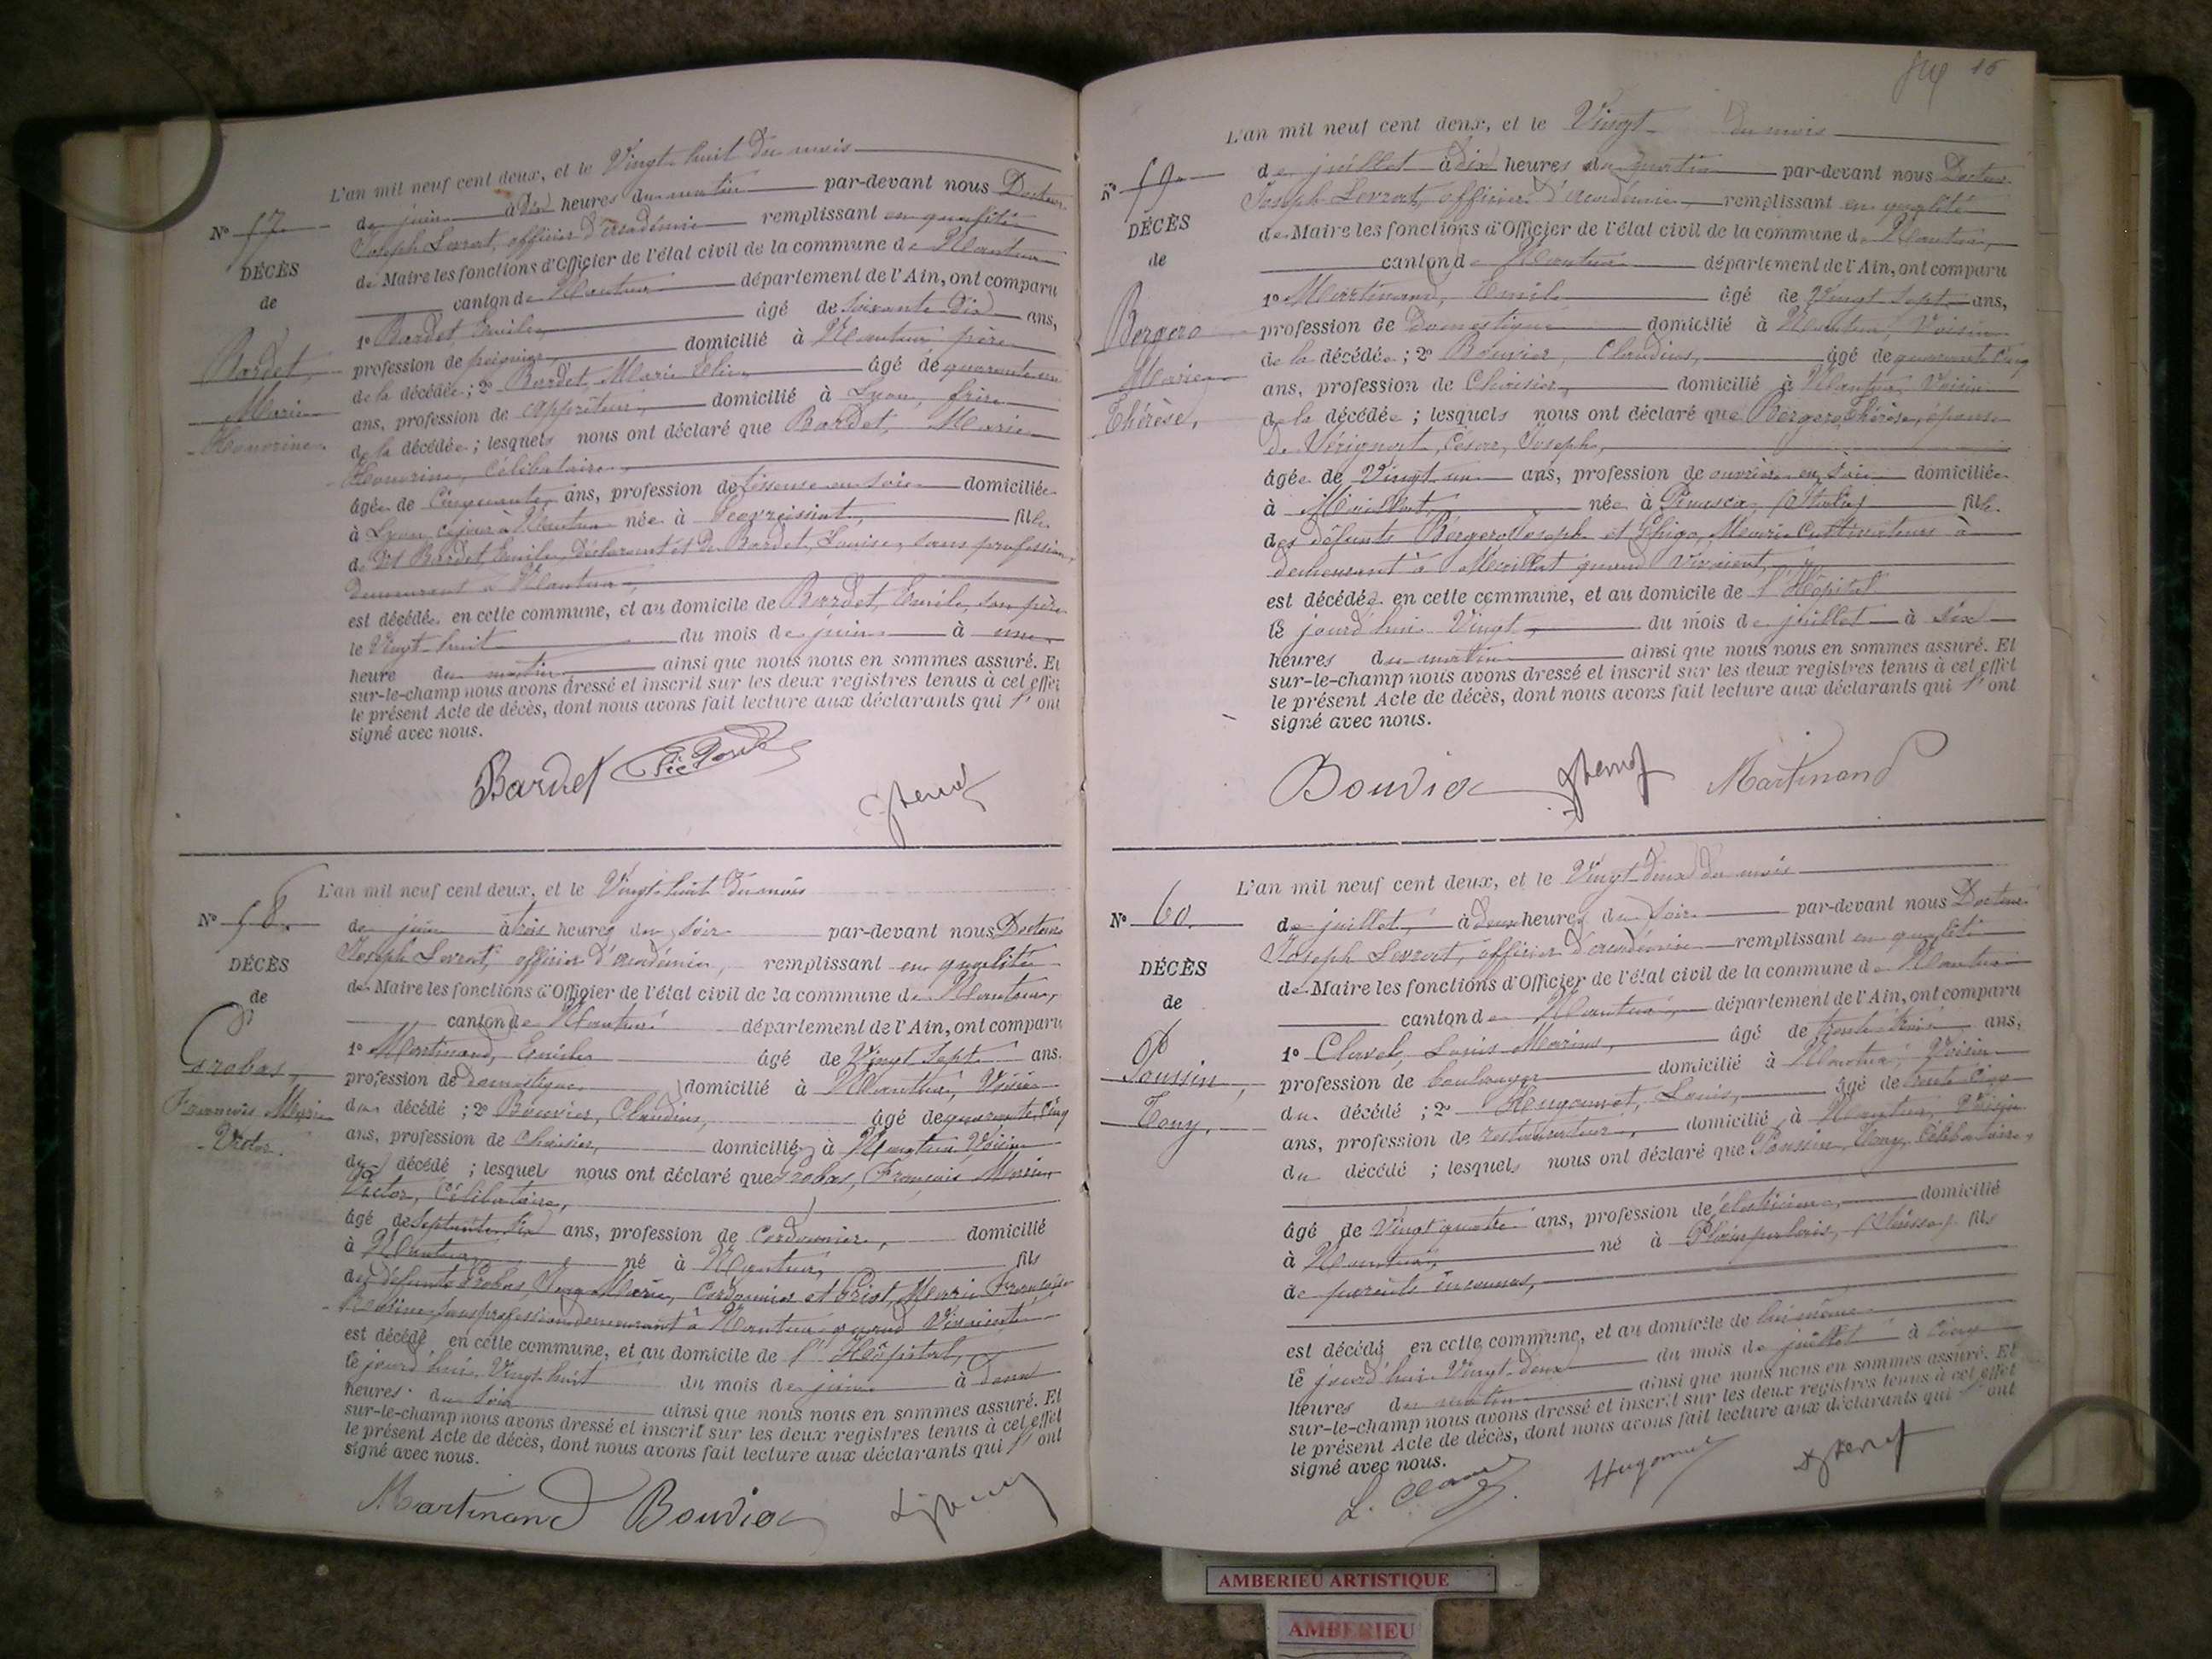 L'an mil neuf cent deux, et le Vingt huit du mois
de juin à dix heures du matin par-devant nous Docteur
Joseph Levrat, officier d'académie remplissant en qualité
de Maire les fonctions d'Officier de l'état civil de la commune de Nantua
canton de Nantua département de l'Ain, ont comparu
1º Bardet Emile, âgé de soixante dix ans,
profession de peignier, domicilié à Nantua père
de la décédée ; 2º Bardet, Marie Elie, âgé de quarante un
ans, profession de apprêteur, domicilié à Lyon, frère
de la décédée ; lesquels nous ont déclaré que Bardet, Marie
Honorine, célibataire,
âgée de Cinquante, ans, profession de tisseuse en soie domiciliée
à Lyon, née à fille
de Bardet, Emile, déclarant et de Bardet, Louise, sans profession,
demeurant à Nantua,
est décédée en cette commune, et au domicile de Bardet, Emile, son père
le Vingt huit du mois de juin à une
heure du matin ainsi que nous nous en sommes assuré. Et
sur-le-champ nous avons dressé et inscrit sur les deux registres tenus à cet effet
le présent Acte de décès, dont nous avons fait lecture aux déclarants qui l'ont
signé avec nous.
Nº 57.
DÉCÈS
de
Bardet,
Marie
Honorine.
Bardet
L'an mil neuf cent deux, et le Vingt huit du mois
de juin à trois heures du soir par-devant nous Docteur
Joseph Levrat, officier d'académie, remplissant en qualité
de Maire les fonctions d'Officier de l'état civil de la commune de Nantua,
canton de Nantua département de l'Ain, ont comparu
1º Martinand, Emile âgé de Vingt Sept ans.
profession de domestique domicilié à Nantua, Voisin
du décédé ; 2º Bouvier, Claudius, âgé de quarante cinq
ans, profession de Chaisier, domicilié à Nantua Voisin
du décédé ; lesquels nous ont déclaré que Grobas, François Marie
Victor, Célibataire,
âgé de Septante six ans, profession de Cordonnier, domicilié
à Nantua, né à Nantua, fils
des défunts Grobas, Jean Marie, Cordonnier et Marie Françoise
sans profession demeurant à Nantua quand Vivaient
est décédé en cette commune, et au domicile de l'Hôpital,
le jourd'hui Vingt huit du mois de juin à deux
heures du soir ainsi que nous nous en sommes assuré. Et
sur-le-champ nous avons dressé et inscrit sur les deux registres tenus à cet effet
le présent Acte de décès, dont nous avons fait lecture aux déclarants qui l'ont
signé avec nous.
Nº 58.
DÉCÈS
de
Grobas,
François Marie
Victor.
Martinand Bouvier
16
L'an mil neuf cent deux, et le Vingt du mois
de juillet à dix heures du matin par-devant nous Docteur
Joseph Levrat, officier d'académie remplissant en qualité
de Maire les fonctions d'Officier de l'état civil de la commune de Nantua,
canton de Nantua département de l'Ain, ont comparu
1º Martinand, Emile âgé de Vingt Sept ans,
profession de Domestique domicilié à Nantua, Voisin
de la décédée ; 2º Bouvier, Claudius, âgé de quarante cinq
ans, profession de Chaisier, domicilié à Nantua, Voisin
de la décédée ; lesquels nous ont déclaré que Bergero Thérèse, épouse
de Vérignot, César, Joseph,
âgée de Vingt un ans, profession de ouvrière en soie domiciliée
à Maillat, née à Pinasca, (Italie) fille
des défunts Bergero Joseph et Ghigo, Marie Cultivateurs à
demeurant à Maillat quand Vivaient,
est décédée en cette commune, et au domicile de l'Hôpital
le jourd'hui Vingt, du mois de juillet à six
heures du matin ainsi que nous nous en sommes assuré. Et
sur-le-champ nous avons dressé et inscrit sur les deux registres tenus à cet effet
le présent Acte de décès, dont nous avons fait lecture aux déclarants qui l'ont
signé avec nous.
Nº 59.
DÉCÈS
de
Bergero
Marie
Thérèse.
Bouvier Martinand
L'an mil neuf cent deux, et le Vingt deux du mois
de juillet, à deux heures du soir par-devant nous Docteur
Joseph Levrat, officier d'académie remplissant en qualité
de Maire les fonctions d'Officier de l'état civil de la commune de Nantua
canton de Nantua, département de l'Ain, ont comparu
1º Clavel, Louis Marius, âgé de trente trois ans,
profession de boulanger domicilié à Nantua, Voisin
du décédé ; 2º Hugonnet, Louis, âgé de trente cinq
ans, profession de restaurateur, domicilié à Nantua, Voisin
du décédé ; lesquels nous ont déclaré que Poussin, Tony, Célibataire,
âgé de Vingt quatre ans, profession de électricien, domicilié
à Nantua, né à (Suisse) fils
de parents inconnus,
est décédé en cette commune, et au domicile de lui même
le jourd'hui Vingt deux du mois de juillet à cinq
heures du matin ainsi que nous nous en sommes assuré. Et
sur-le-champ nous avons dressé et inscrit sur les deux registres tenus à cet effet
le présent Acte de décès, dont nous avons fait lecture aux déclarants qui l'ont
signé avec nous.
Nº 60.
DÉCÈS
de
Poussin,
Tony.
L. Clavel Hugonnet
AMBERIEU ARTISTIQUE
AMBERIEU